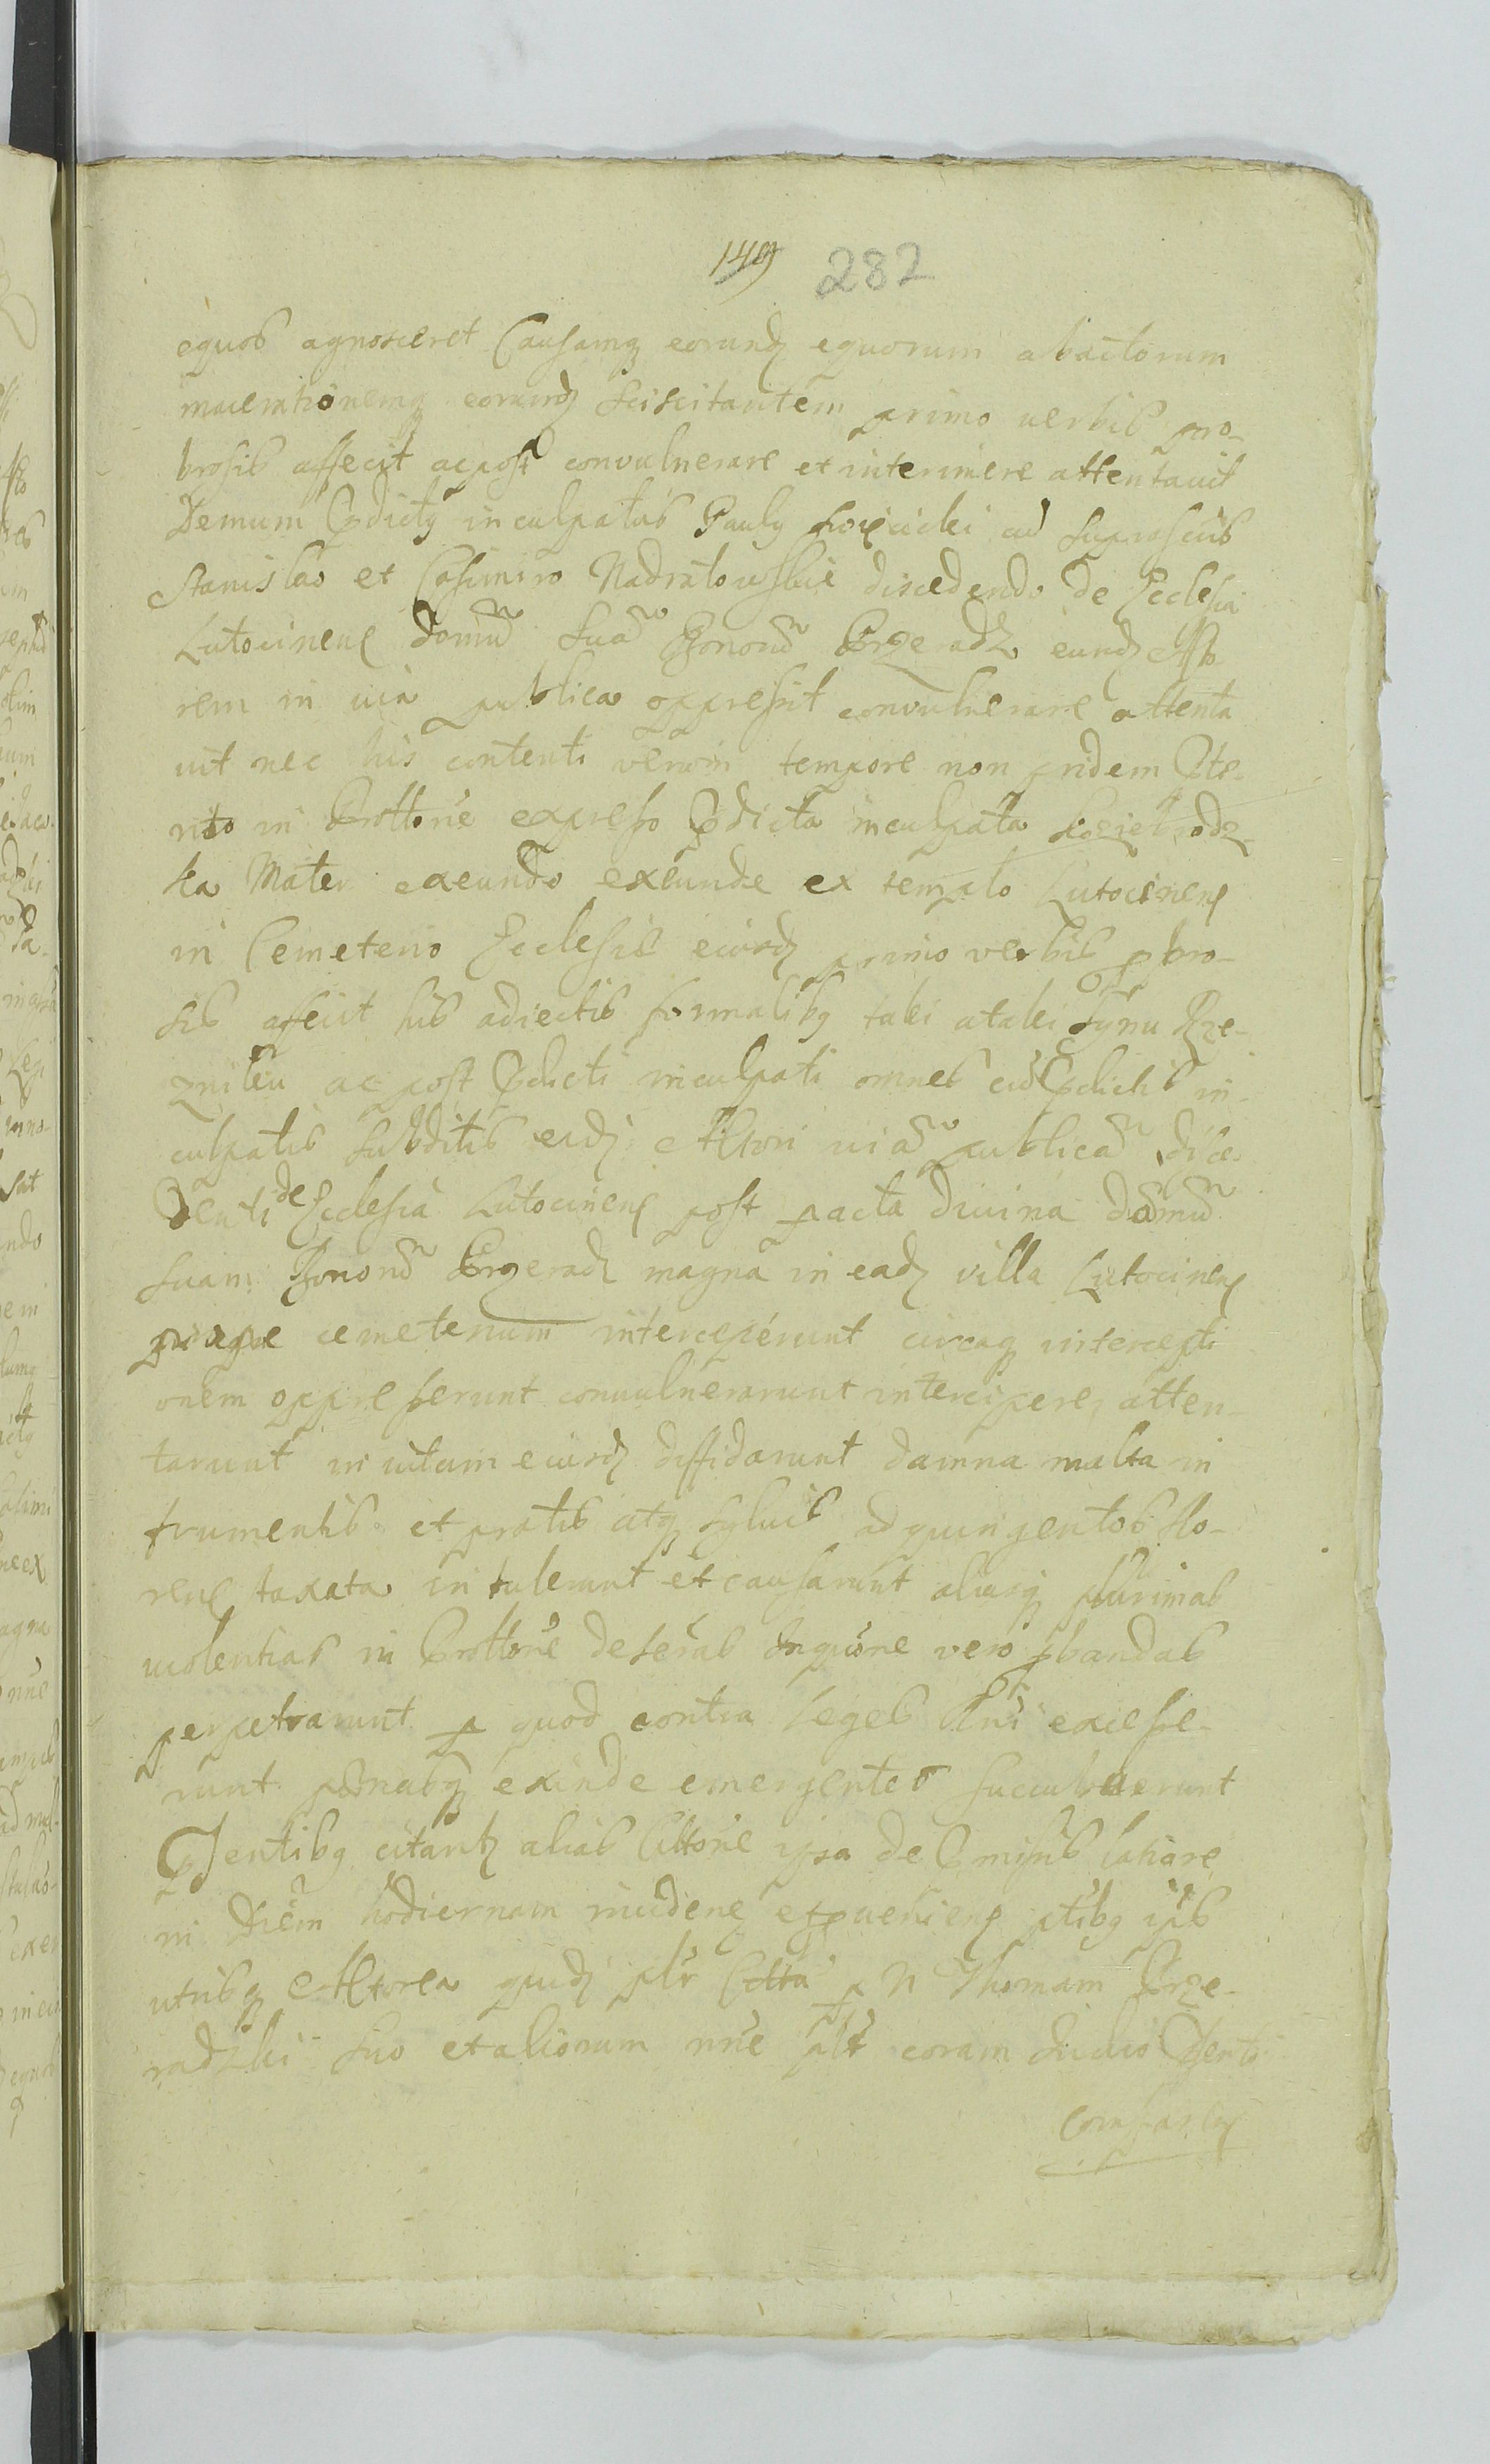 149 282
equos agnosceret Causamq eorundꝫ equorum abactorum
macerationemq eorundꝫ sciscitantem primo uerbis pro-
brosis affecit ac post convulnerare et interimere attentauit
Demum Pdictus inculpatus Paulus cum suprascriptis
Stanislao et Casimiro Nadratowskie discedendo de Ecclesia
Lutocinens domũ suã eundꝫ Acto-
rem in uia publica oppressit convulnerare attenta
uit nec his contenti tempore non pridem Pte-
rito in expresso Pdicta inculpata
ka Mater exeundo exeunde ex templo Lutocinens
in Cemeterio Ecclesiæ eiusdꝫ primo verbis probro-
sis affecit sub adiectis formalibus taki ataki synu Rze-
zniku ac post Pdicti inculpati omnes cũ Pdictis in-
culpatis subditis eidꝫ Actori uiã publicã disce-
denti de Ecclesia Lutocinens post pacta diuina domũ
suam magna in eadꝫ villa Lutocinens
prope cemeterium interceperunt circaq intercepti
onem oppresserunt conuulnerarunt intercipere atten-
tarunt in uitam eiusdꝫ diffidarunt damna multa in
frumentis et pratis atq syluis ad quingentos flo-
rens taxata intulerunt et causarunt aliasq plurimas
uiolentias in deferãs vero pbandas
perpetrarunt p quod contra leges Rni excesse-
runt pœnasq exinde emergentes succubuerunt
citantꝫ alias Cittõne ipsa de Pmissis latiore
in Diem hodiernam incidens et pueniens ptibus ipsis
utrisq Actorea quidꝫ p N Thomam Brze-
radzki suo et aliorum nõie coram Iudicio Pſenti
comparens